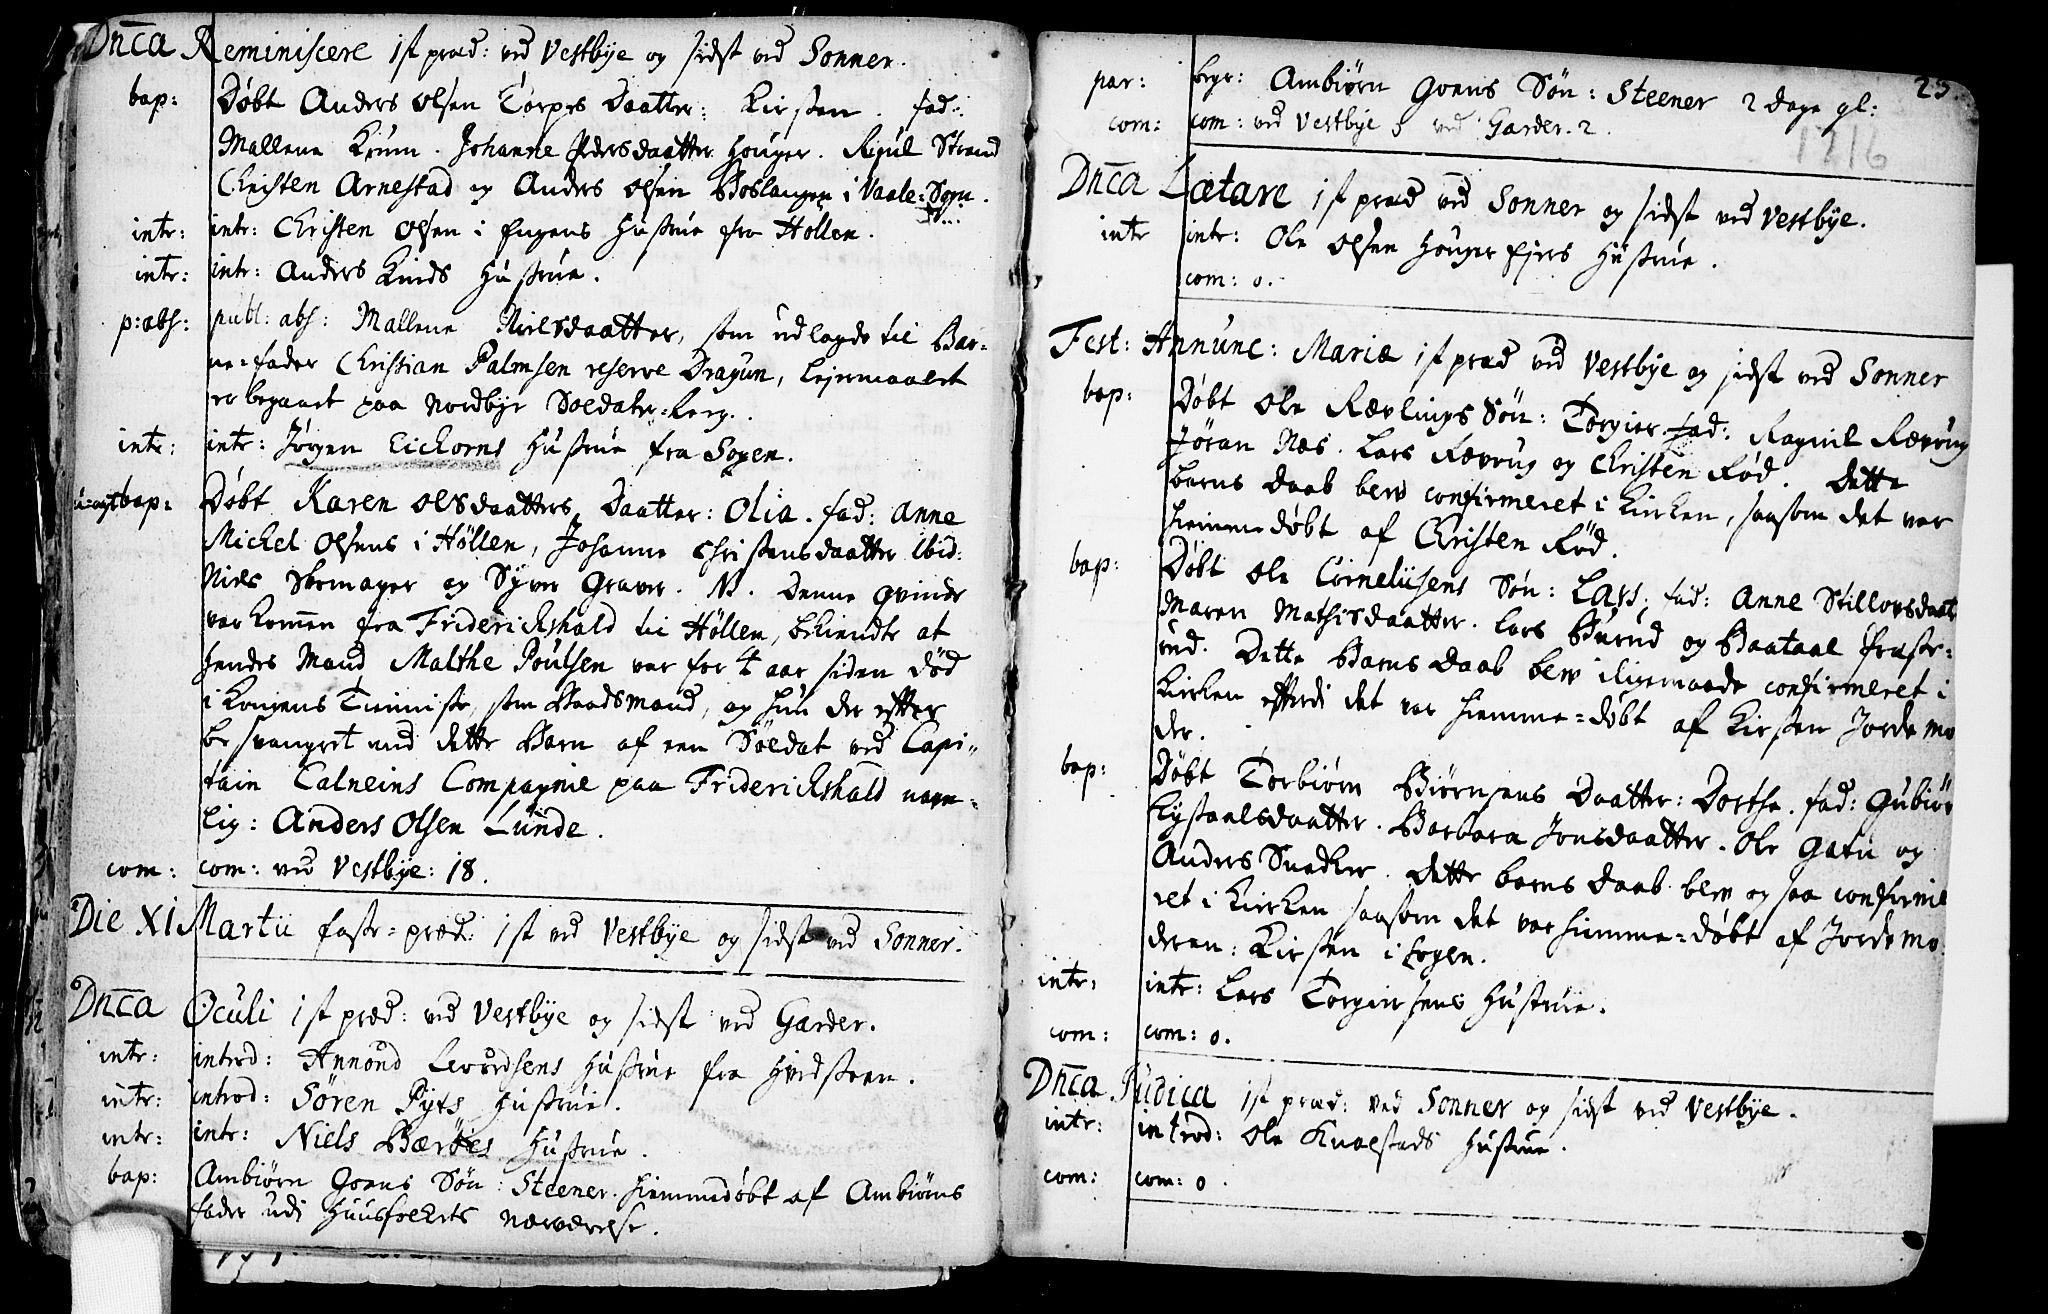 Dnca Reminiscere 1st præd: ved Vestbye og sidst ved Sonner.
bap: Døbt Anders Olsen Torpes Daatter: Kirsten. fad:
Mallene Krum. Johanne Pedersdaatter Houger. Strand
Christen Arnestad og Anders Olsen i Vaale=Sogn.
intr: intr: Christen Olsen i Engens Hustrue fra Hollen.
intr: intr: Anders Kinds Hustrue.
p:abs: publ: abs: Mallene Nielsdaatter, som udlagde til Bar-
ne=fader Christian Palmsen reserve Dragun, Lejermaalet
er begaaet paa Nordbye Soldater=Leeg.
intr: intr: Jørgen Eickorns Hustrue fra Sogen.
u-ægt bap: Døbt Karen Olsdaatters Daatter: Olia. fad: Anne
Michel Olsens i Höllen, Johanne Christensdaatter ibid:
Niels Skomager og Syver Graver. NB. Denne qvinde
var kommen fra Friderickshald til Höllen, bekiendte at
hendes Mand Malthe Poulsen var for 4 aar siden død
i Kongens Tienniste, som Baadsmand, og hun der efter
besvangret med dette Barn af een Soldat ved Capi-
tain Calneins Compagnie paa Friderickshald navn-
lig: Anders Olsen Lunde.
com: com: ved Vestbye: 18.
Die XI Martii faste=præd: 1st ved Vestbye og sidst ved Sonner.
Dnca Oculi 1st præd: ved Vestbye og sidst ved Garder.
intr: introd: Annond Levordsens Hustrue fra Hvidsteen.
intr: introd: Søren Pyts Hustrue.
intr: intr: Niels Bærøes Hustrue.
bap: Ambiørn Goens Søn: Steener. hiemmedøbt af Ambiørns
fader udi Huusfolckets nærværelse.
23
par: begr: Ambiørn Goens Søn: Steener 2 dage gl:
com: com: ved Vestbye 5 ved Garder. 2.
1716
Dnca Lætare 1st præd ved Sonner og sidst ved Vestbye.
intr intr: Ole Olsen Houger Ejers Hustrue.
com: 0.
Fest: Annunc: Mariæ 1st præd ved Vestbye og sidst ved Sonner
bap: Døbt Ole Rævlings Søn: Torgier. fad: Ragnil Rævrug
Jöran Næs. Lars Rævrug og Christen Rød. Dette
barns daab blev confirmeret i Kirken, saasom det var
hiemmedøbt af Christen Rød.
bap: Døbt Ole Corneliisens Søn: Lars; fad: Anne Stillovsdaat
Maren Mathisdaatter. Lars Burud og Baataal
rud. Dette Barns Daab blev iligemaade confirmeret i
Kirken efterdi det var hiemme=døbt af Kirsten Jordemo
der.
bap: Døbt Torbiørn Biørnsens Daatter: Dorthe. fad: Gubiør
Barbara Jonsdaatter. Ole Gatu og
Anders Snedker. Dette barns daab blev og saa confirme
ret i Kirken saasom det var hiemme=døbt af Jordemo
deren: Kirsten i Sogen.
intr: intr: Lars Torgiersens Hustrue.
com: com: 0.
Dnca Judica 1st præd: ved Sonner og sidst ved Vestbye.
intr: introd: Ole Knolstads Hustrue.
com: com: 0.